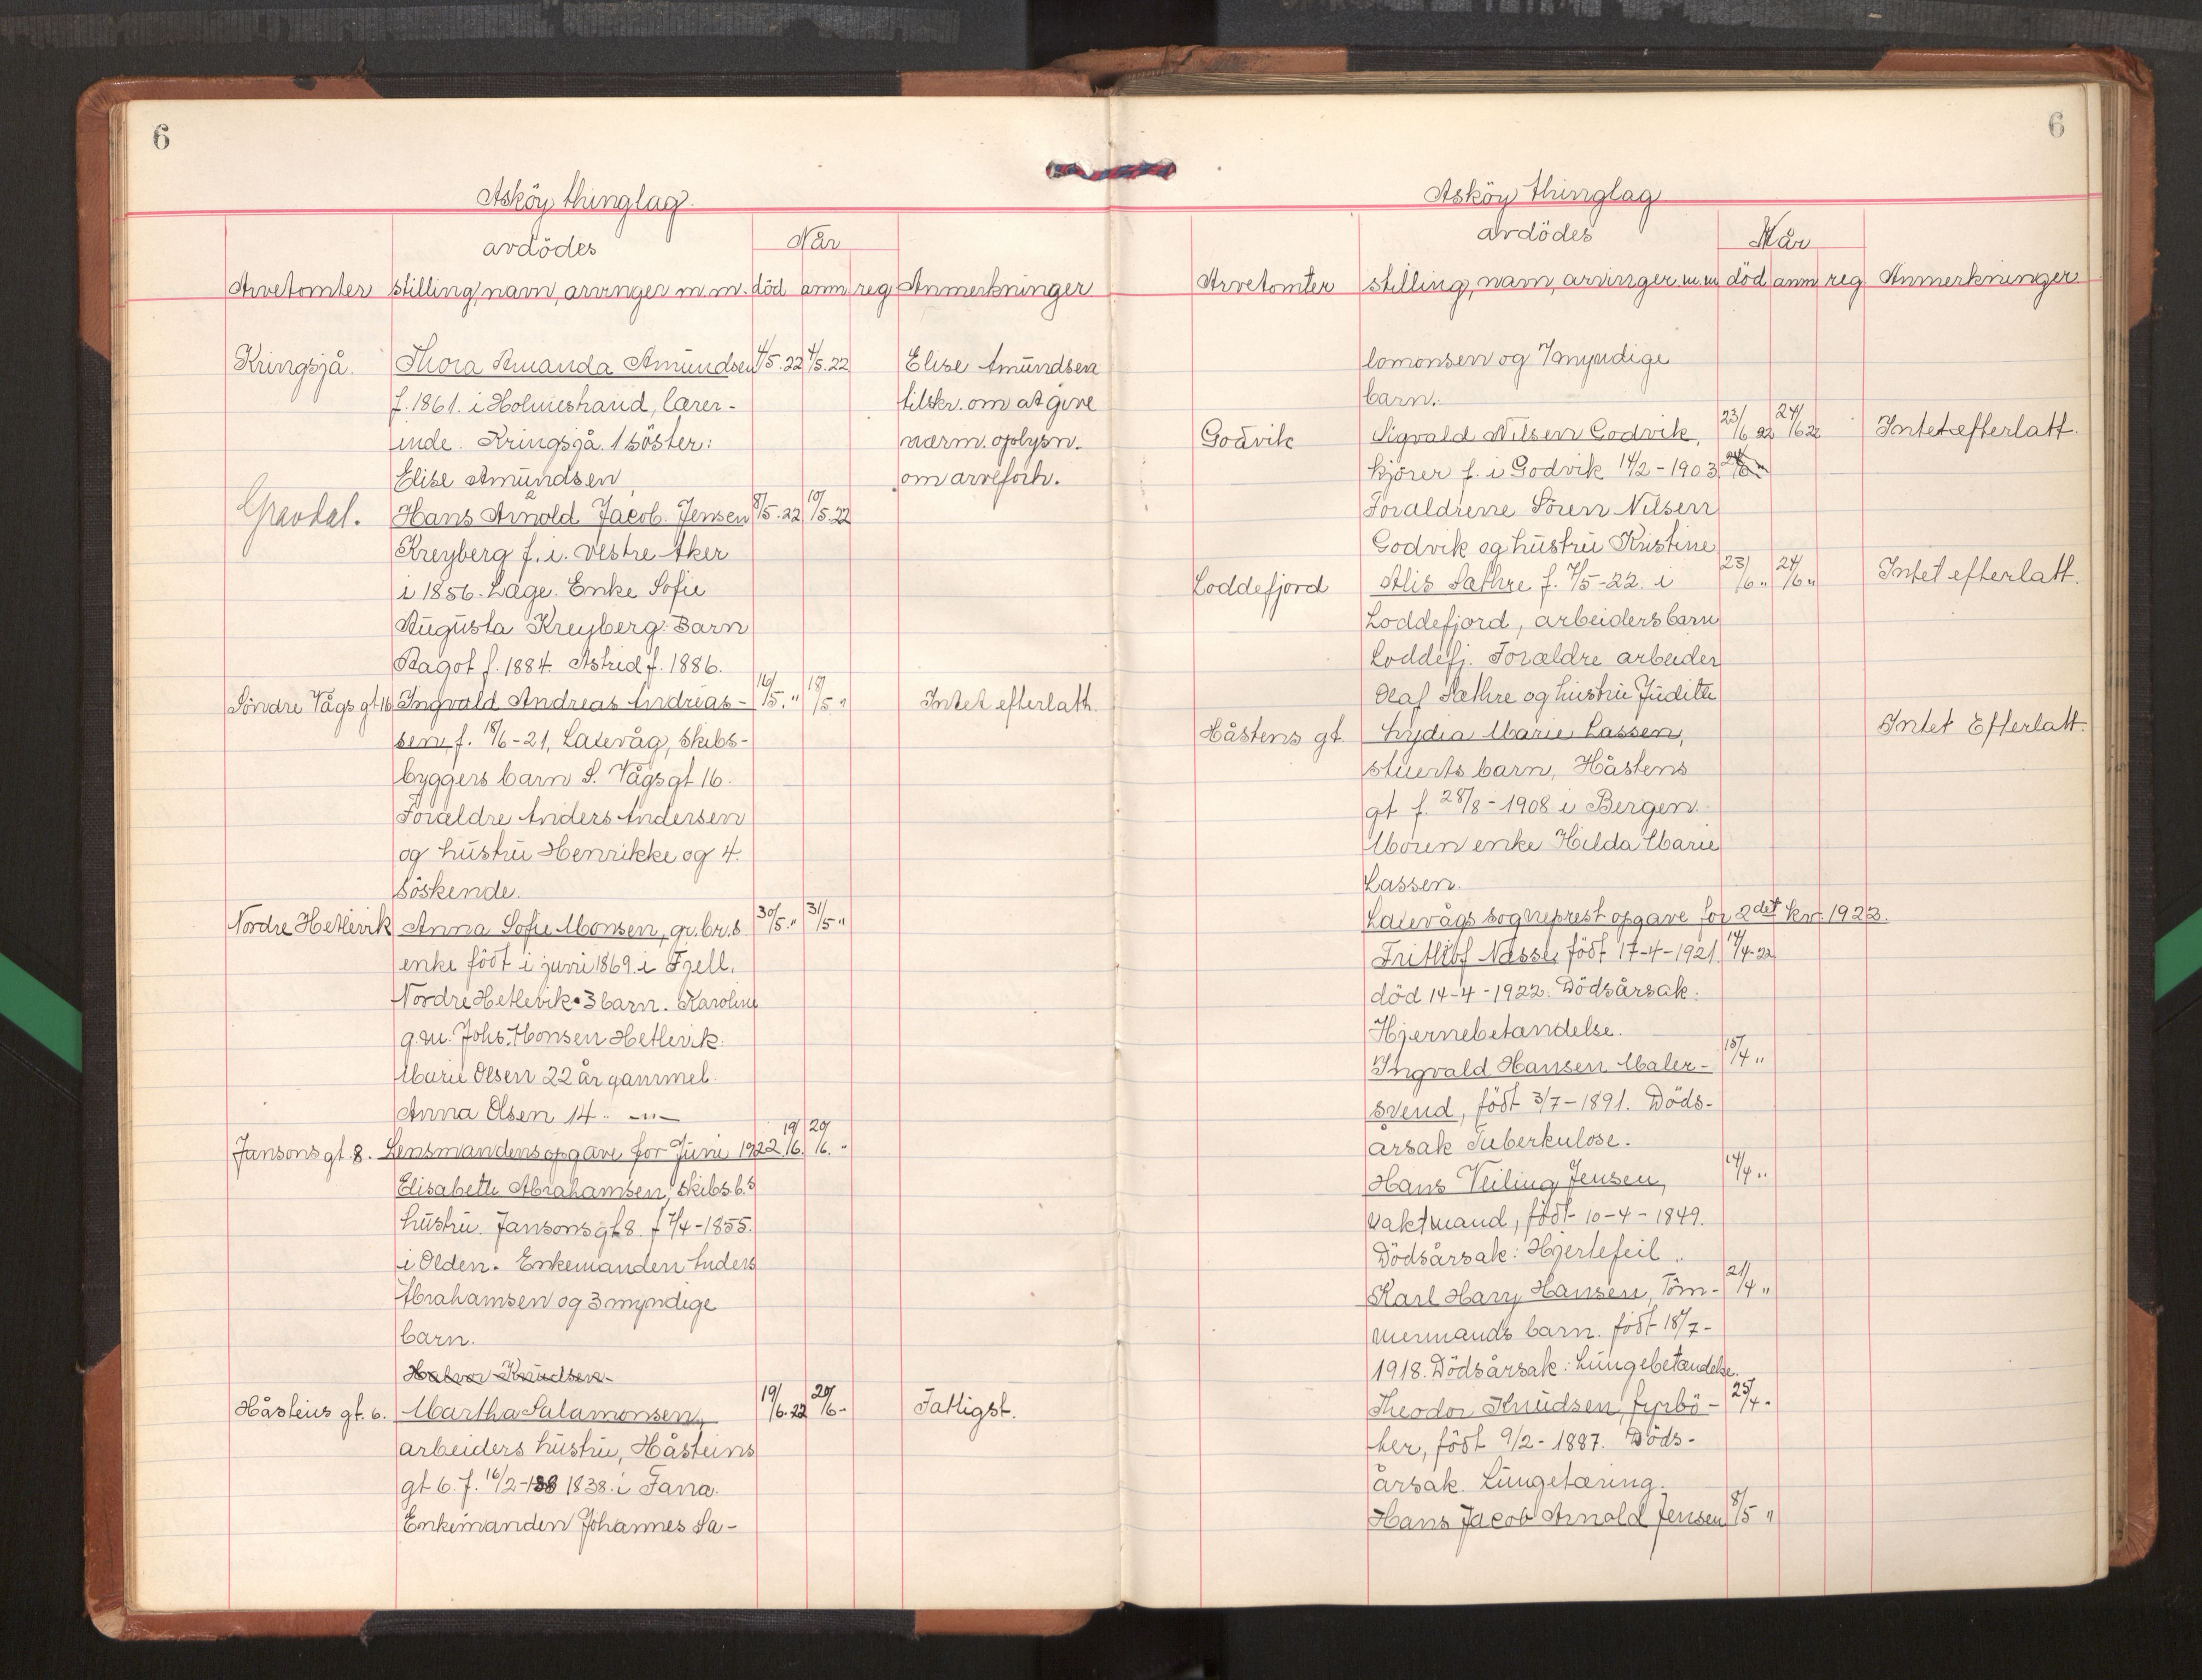 6
Asköy thinglag.
avdödes
Når
Arvetomter stilling, navn, arvinger m.m. död anm reg Anmerkninger
Kringsjå. Thora Amanda Amundsen 4/5.22 4/5.22 Elise Amundsen
f. 1861. i Holmestrand, lærer- tilskr. om at give
inde. Kringsjå. 1 söster: nærm. oplysn.
Elise Amundsen om arveforh.
Gravdal. Hans Arnold Jacob. Jensen 8/5.22 10/5.22
Kreyberg f. i. Vestre Aker
i 1856. Læge. Enke Sofie
Augusta Kreyberg: Barn
Ragot f. 1884. Astrid f. 1886.
Söndre Vågs gt 16 Ingvald Andreas Andreas- 16/5. " 18/5 " Intet efterlatt.
sen, f. 18/6-21, Laxevåg, skibs-
byggers barn S. Vågsgt 16.
Foræeldre Anders Andersen
og hustru Henrikke og 4.
söskende.
Nordre Hetlevik Anna Sofie Monsen, gr.br.s 30/5. " 31/5 "
enke födt i juni 1869. i Fjell.
Nordre Hetlevik. 3 barn. Karoline
g.m. Johs. Monsen Hetlevik.
Marie Olsen 22 år gammel.
Anna Olsen 14 .. -"-
Jansons gt. 8. Lensmandens opgave for Juni 1922 19/6. 20/6. "
Elisabeth Abrahamsen, skibs.b.s
hustru. Jansons gt 8. f 7/4-1855.
i Olden. Enkemanden Anders
Abrahamsen og 3 myndige
barn.
Halvor Knudsen
Håsteins gt. 6. Martha Salamonsen, 19/6.22 20/6- Fattigst.
arbeiders hustru, Håsteins
gt 6. f. 16/2-188 1838. i Fana.
Enkemanden Johannes Sa-
6
Asköy thinglag
avdödes
Når
Arvetomter stilling, navn, arvinger m.m död anm reg Anmerkninger.
lomonsen og 7 myndige
barn.
Godvik Sigvald Nilsen Godvik, 23/6 22 24/6 22 Intet efterlatt.
kjörer f. i Godvik 14/2-1903. 24/6 "
Foraldrene Sören Nilsen
Godvik og hustru Kristine
Loddefjord Alis Sæthre f. 7/5-22. i 23/6 " 24/6 " Intet efterlatt.
Loddefjord, arbeiders barn
Loddefj. Forældre arbeider
Olaf Sæthre og hustru Judith
Håstens gt. Lydia Marie Lassen, Intet Efterlatt.
stuerts barn, Håstens
gt f. 28/8-1908 i Bergen.
Moren enke Hilda Marie
Lassen.
Laxevågs sogneprest opgave for 2det kv. 1922.
Frithjof Næsse, födt 17-4-1921. 14/4-22
död 14-4-1922. Dödsårsak:
Hjernebetændelse.
Ingvald Hansen Maler- 15/4 "
svend, födt 3/7-1891. Döds-
årsak Tuberkulose.
Hans Veiling Jensen, 14/4 "
vaktmand, födt 10-4-1849.
Dödsårsak: Hjertefeil.
Karl Harry Hansen, Töm- 21/4 "
mermands barn. födt 18/7-
1918. Dödsårsak: Lungebetændelse.
Theodor Knudsen, fyrbö- 25/4 "
ter, födt 9/2-1887. Döds-
årsak. Lungetæring.
Hans Jacob Arnold Jensen 8/5 "